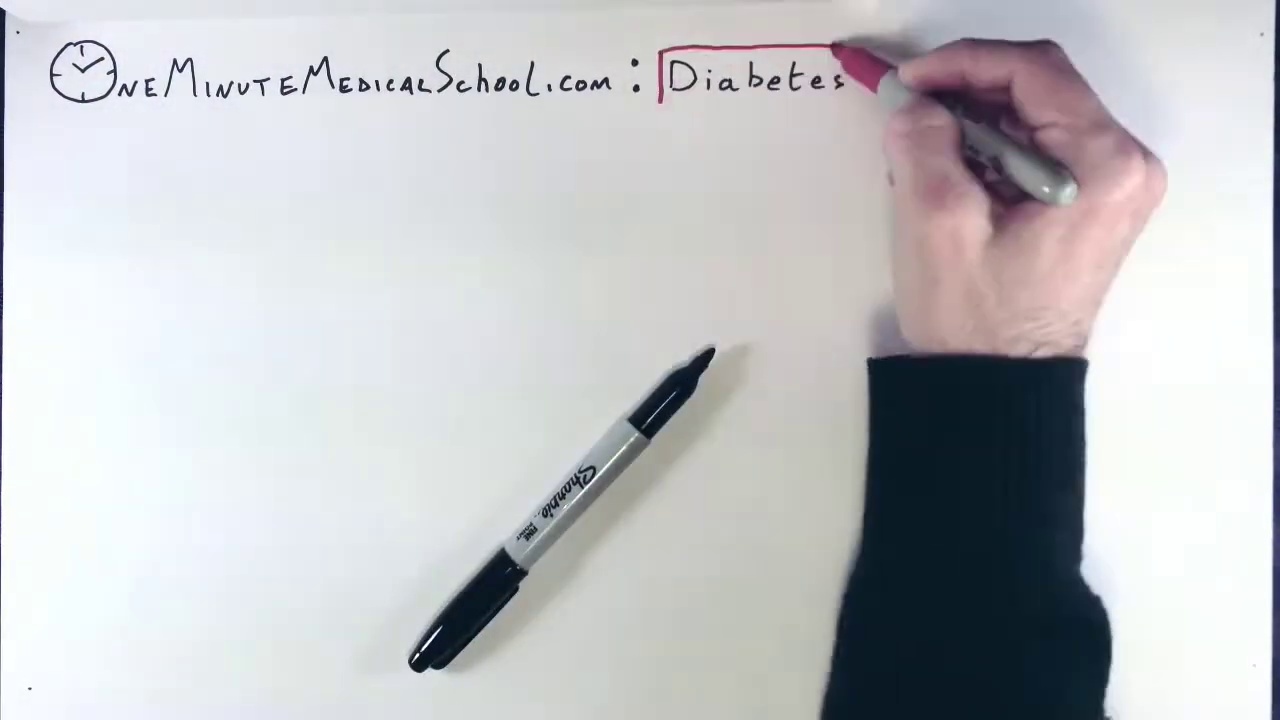 OneMinuteMedicalSchool.com : Diabetes
Sharpie
FINE POINT